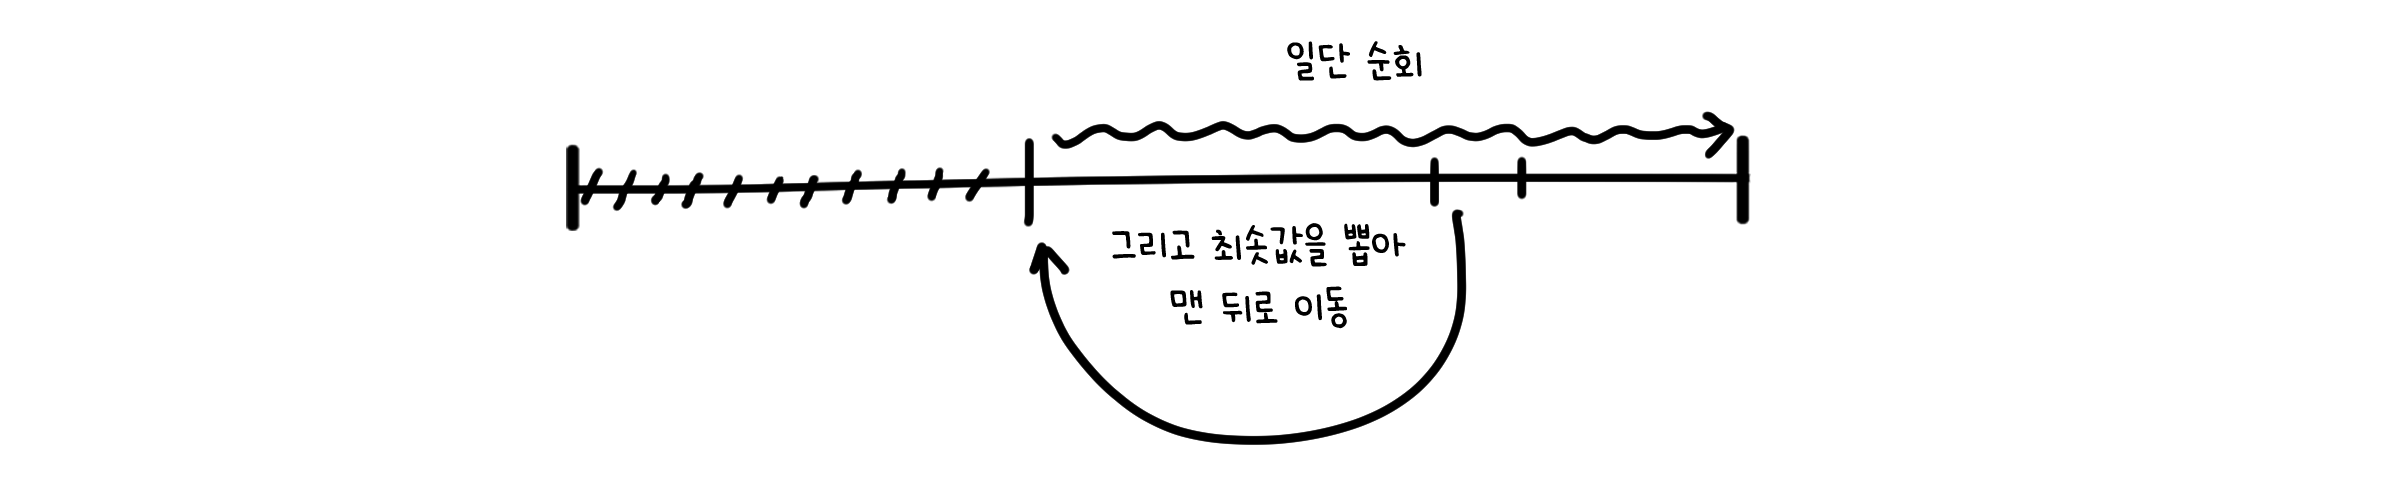 일단 순회
그리고 최솟값을 뽑아
맨 뒤로 이동